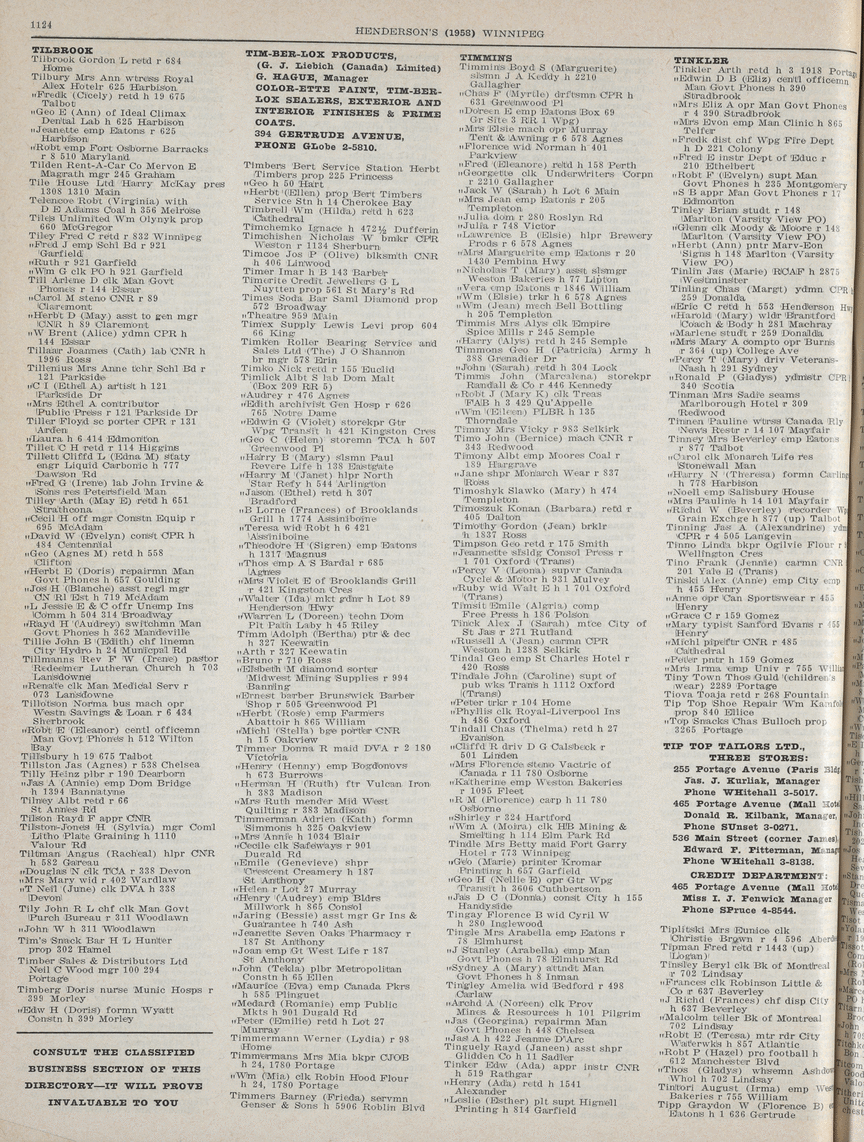 1124
HENDERSON'S (1958) WINNIPEG
TILBROOK
Tilbrook Gordon L retd r 684
Home
Tilbury Mrs Ann wtress Royal
Alex Hotelr 625 Harbison
"Fredk (Cicely) retd h 19 675
Talbot
"Geo E (Ann) of Ideal Climax
Dental Lab h 625 Harbison
"Jeanette emp Eatons r 625
Harbison
"Robt emp Fort Osborne Barracks
r 8 510 Maryland
Tilden Rent-A-Car Co Mervon E
Magrath mgr 245 Graham
Tile House Ltd Harry McKay pres
1308 1310 Main
Telencoe Robt (Virginia) with
D E Adams Coal h 356 Melrose
Tiles Unlimited Wm Olynyk prop
660 McGregor
Tiley Fred C retd r 832 Winnipeg
"Fred J emp Schl Bd r 921
Garfield
"Ruth r 921 Garfield
"Wm G clk PO h 921 Garfield
Till Arlene D clk Man Govt
Phones r 144 Essar
"Carol M steno CNR r 89
Claremont
"Herbt D (May) asst to gen mgr
CNR h 89 Claremont
"W Brent (Alice) ydmn CPR h
144 Essar
Tillaar Joannes (Cath) lab CNR h
1996 Ross
Tillenius Mrs Anne tchr Schl Bd r
121 Parkside
"C I (Ethel A) artist h 121
Parkside Dr
"Mrs Ethel A contributor
Public Press r 121 Parkside Dr
Tiller Floyd sc porter CPR r 131
Arden
"Laura h 6 414 Edmonton
Tillet C H retd r 114 Higgins
Tillett Cliffd L (Edna M) staty
engr Liquid Carbonic h 777
Dawson Rd
"Fred G (Irene) lab John Irvine &
Sons res Petersfield Man
Tilley Arth (May E) retd h 651
Strathcona
"Cecil H off mgr Constn Equip r
695 McAdam
"David W (Evelyn) const CPR h
484 Centennial
"Geo (Agnes M) retd h 558
Clifton
"Herbt E (Doris) repairmn Man
Govt Phones h 657 Goulding
"Jos H (Blanche) asst regl mgr
CN Rl Est h 719 McAdam
"L Jessie E & C offr Unemp Ins
Comm h 504 314 Broadway
"Rayd H (Audrey) switchmn Man
Govt Phones h 362 Mandeville
Tillie John B (Edith) chf linemn
City Hydro h 24 Municpal Rd
Tillmanns Rev F W (Irene) pastor
Redeemer Lutheran Church h 703
Lansdowne
"Renate clk Man Medical Serv r
073 Lansdowne
Tillotson Norma bus mach opr
Westn Savings & Loan r 6 434
Sherbrook
"Robt E (Eleanor) centl officemn
Man Govt Phones h 512 Wilton
Bay
Tillsbury h 19 675 Talbot
Tillston Jas (Agnes) r 538 Chelsea
Tilly Heinz plbr r 190 Dearborn
"Jas A (Annie) emp Dom Bridge
h 1394 Bannatyne
Tilney Albt retd r 66
St Annes Rd
Tilson Rayd F appr CNR
Tilston-Jones H (Sylvia) mgr Coml
Litho Plate Graining h 1110
Valour Rd
Tiltman Angus (Racheal) hlpr CNR
h 582 Gareau
"Douglas N clk TCA r 338 Devon
"Mrs Mary wid r 402 Wardlaw
"T Neil (June) clk DVA h 338
Devon
Tily John R L chf clk Man Govt
Purch Bureau r 311 Woodlawn
"John W h 311 Woodlawn
Tim's Snack Bar H L Hunter
prop 302 Hamel
Timber Sales & Distributors Ltd
Neil C Wood mgr 100 294
Portage
Timberg Doris nurse Munic Hosps r
399 Morley
"Edw H (Doris) formn Wyatt
Constn h 399 Morley
CONSULT THE CLASSIFIED
BUSINESS SECTION OF THIS
DIRECTORY—IT WILL PROVE
INVALUABLE TO YOU
TIM-BER-LOX PRODUCTS,
(G. J. Liebich (Canada) Limited)
G. HAGUE, Manager
COLOR-ETTE PAINT, TIM-BER-
LOX SEALERS, EXTERIOR AND
INTERIOR FINISHES & PRIME
COATS.
394 GERTRUDE AVENUE,
PHONE GLobe 2-5810.
Timbers Bert Service Station Herbt
Timbers prop 225 Princess
"Geo h 50 Hart
"Herbt (Ellen) prop Bert Timbers
Service Stn h 14 Cherokee Bay
Timbrell Wm (Hilda) retd h 623
Cathedral
Timchemko Ignace h 472½ Dufferin
Timchishen Nicholas W bmkr CPR
Weston r 1134 Sherburn
Timcoe Jos P (Olive) blksmth CNR
h 406 Linwood
Timer Imar h B 143 Barber
Timerite Credit Jewellers G L
Nuytten prop 561 St Mary's Rd
Times Soda Bar Saml Diamond prop
572 Broadway
"Theatre 959 Main
Timex Supply Lewis Levi prop 604
66 King
Timken Roller Bearing Service and
Sales Ltd (The) J O Shannon
br mgr 578 Erin
Timko Nick retd r 155 Euclid
Timlick Albt S lab Dom Malt
(Box 209 RR 5)
"Audrey r 476 Agnes
"Edith archivist Gen Hosp r 626
765 Notre Dame
"Edwin G (Violet) storekpr Gtr
Wpg Transit h 421 Kingston Cres
"Geo C (Helen) storemn TCA h 507
Greenwood Pl
"Harry B (Mary) slsmn Paul
Revere Life h 138 Eastgate
"Harry M (Janet) hlpr North
Star Refy h 544 Arlington
"Jason (Ethel) retd h 307
Bradford
"B Lorne (Frances) of Brooklands
Grill h 1774 Assiniboine
"Teresa wid Robt h 6 421
Assiniboine
"Theodore H (Sigren) emp Eatons
h 1317 Magnus
"Thos emp A S Bardal r 685
Agnes
"Mrs Violet E of Brooklands Grill
r 421 Kingston Cres
"Walter (Ida) mkt gdnr h Lot 89
Henderson Hwy
"Warren L (Doreen) techn Dom
Plt Path Laby h 45 Riley
Timm Adolph (Bertha) ptr & dec
h 327 Keewatin
"Arth r 327 Keewatin
"Bruno r 710 Ross
"Elsbeth M diamond sorter
Midwest Mining Supplies r 994
Banning
"Ernest barber Brunswick Barber
Shop r 505 Greenwood Pl
"Herbt (Rose) emp Farmers
Abattoir h 865 William
"Michl (Stella) bge porter CNR
h 15 Oakview
Timmer Donna R maid DVA r 2 180
Victoria
"Henry (Henny) emp Bogdonovs
h 673 Burrows
"Herman H (Ruth) ftr Vulcan Iron
h 383 Madison
"Mrs Ruth mender Mid West
Quilting r 383 Madison
Timmerman Adrien (Kath) formn
Simmons h 325 Oakview
"Mrs Annie h 1034 Blair
"Cecile clk Safeways r 901
Dugald Rd
"Emile (Genevieve) shpr
Crescent Creamery h 187
St Anthony
"Helen r Lot 27 Murray
"Henry (Audrey) emp Bldrs
Millwork h 865 Consol
"Jaring (Bessie) asst mgr Gr Ins &
Guarantee h 740 Ash
"Jeanette Seven Oaks Pharmacy r
187 St Anthony
"Joan emp Gt West Life r 187
St Anthony
"John (Tekla) plbr Metropolitan
Constn h 65 Ellen
"Maurice (Eva) emp Canada Pkrs
h 585 Plinguet
"Medard (Romanie) emp Public
Mkts h 901 Dugald Rd
"Peter (Emilie) retd h Lot 27
Murray
Timmermann Werner (Lydia) r 98
Home
Timmermans Mrs Mia bkpr CJOB
h 24, 1780 Portage
"Wm (Mia) clk Robin Hood Flour
h 24, 1780 Portage
Timmers Barney (Frieda) servmn
Genser & Sons h 5906 Roblin Blvd
TIMMINS
Timmins Boyd S (Marguerite)
slsmn J A Keddy h 2210
Gallagher
"Chas F (Myrtle) drftsmn CPR h
631 Greenwood Pl
"Doreen E emp Eatons (Box 69
Gr Site 3 RR 1 Wpg)
"Mrs Elsie mach opr Murray
Tent & Awning r 6 578 Agnes
"Florence wid Norman h 401
Parkview
"Fred (Eleanore) retd h 158 Perth
"Georgette clk Underwriters Corpn
r 2210 Gallagher
"Jack W (Sarah) h Lot 6 Main
"Mrs Jean emp Eatons r 205
Templeton
"Julia dom r 280 Roslyn Rd
"Julia r 748 Victor
"Lawrence B (Elsie) hlpr Brewery
Prods r 6 578 Agnes
"Mrs Marguerite emp Eatons r 20
1430 Pembina Hwy
"Nicholas T (Mary) asst slsmgr
Weston Bakeries h 77 Lipton
"Vera emp Eatons r 1846 William
"Wm (Elsie) trkr h 6 578 Agnes
"Wm (Jean) mech Bell Bottling
h 205 Templeton
Timmis Mrs Alys clk Empire
Spice Mills r 245 Semple
"Harry (Alys) retd h 245 Semple
Timmons Geo H (Patricia) Army h
388 Grenadier Dr
"John (Sarah) retd h 304 Lock
Timms John (Marcelena) storekpr
Randall & Co r 446 Kennedy
"Robt J (Mary K) clk Treas
FAB h 3 429 Qu'Appelle
"Wm (Eileen) PLBR h 135
Thorndale
Timmy Mrs Vicky r 983 Selkirk
Timo John (Bernice) mach CNR r
343 Redwood
Timony Albt emp Moores Coal r
189 Hargrave
"Jane shpr Monarch Wear r 837
Ross
Timoshyk Slawko (Mary) h 474
Templeton
Timoszuk Konan (Barbara) retd r
405 Dalton
Timothy Gordon (Jean) brklr
h 1837 Ross
Timpson Geo retd r 175 Smith
"Jeannette slsldg Consol Press r
1 701 Oxford (Trans)
"Percy V (Leona) supvr Canada
Cycle & Motor h 931 Mulvey
"Ruby wid Walt E h 1 701 Oxford
(Trans)
Timsit Emile (Algria) comp
Free Press h 186 Polson
Tinck Alex J (Sarah) mtce City of
St Jas r 271 Rutland
"Russell A (Jean) carmn CPR
Weston h 1288 Selkirk
Tindal Geo emp St Charles Hotel r
420 Ross
Tindale John (Caroline) supt of
pub wks Trans h 1112 Oxford
(Trans)
"Peter trkr r 104 Home
"Phyllis clk Royal-Liverpool Ins
h 486 Oxford
Tindall Chas (Thelma) retd h 27
Evanson
"Cliffd R driv D G Calsbeck r
501 Linden
"Mrs Florence steno Vactric of
Canada r 11 780 Osborne
"Katherine emp Weston Bakeries
r 1095 Fleet
"R M (Florence) carp h 11 780
Osborne
"Shirley r 324 Hartford
"Wm A (Moira) clk HB Mining &
Smelting h 114 Elm Park Rd
Tindle Mrs Betty maid Fort Garry
Hotel r 773 Winnipeg
"Geo (Marie) printer Kromar
Printing h 657 Garfield
"Geo H (Nellie E) opr Gtr Wpg
Transit h 3606 Cuthbertson
"Jas D C (Donna) const City h 155
Handyside
Tingay Florence B wid Cyril W
h 280 Inglewood
Tingle Mrs Arabella emp Eatons r
78 Elmhurst
"J Stanley (Arabella) emp Man
Govt Phones h 78 Elmhurst Rd
"Sydney A (Mary) attndt Man
Govt Phones h 8 Inman
Tingley Amelia wid Bedford r 498
Carlaw
"Archd A (Noreen) clk Prov
Mines & Resources h 101 Pilgrim
"Jas (Georgina) repairmn Man
Govt Phones h 448 Chelsea
"Jas A h 422 Jeanne D'Arc
Tinguely Rayd (Janeen) asst shpr
Glidden Co h 11 Sadler
Tinker Edw (Ada) appr instr CNR
h 519 Rathgar
"Henry (Ada) retd h 1541
Alexander
"Leslie (Esther) plt supt Hignell
Printing h 814 Garfield
TINKLER
Tinkler Arth retd h 3 1918
"Edwin D B (Eliz) centl officemn
Man Govt Phones h 390
Stradbrook
"Mrs Eliz A opr Man Govt Phones
r 4 390 Stradbrook
"Mrs Evon emp Man Clinic h 865
Telfer
"Fredk dist chf Wpg Fire Dept
h D 221 Colony
"Fred E instr Dept of Educ r
210 Ethelbert
"Robt F (Evelyn) supt Man
Govt Phones h 235 Montgomery
"S B appr Man Govt Phones r 17
Edmonton
Tinley Brian studt r 148
Marlton (Varsity View PO)
"Glenn clk Moody & Moore r 148
Marlton (Varsity View PO)
"Herbt (Ann) pntr Marv-Eon
Signs h 148 Marlton (Varsity
View PO)
Tinlin Jas (Marie) RCAF h 2875
Westminster
Tinling Chas (Margt) ydmn CPR
259 Donalda
"Eric C retd h 553 Henderson
"Harold (Mary) widr Brantford
Coach & Body h 281 Machray
"Marlene studt r 259 Donalda
"Mrs Mary A compto opr Burns
r 364 (up) College Ave
"Percy T (Mary) driv Veterans-
Nash h 291 Sydney
"Ronald P (Gladys) ydmstr CPR
340 Scotia
Tinman Mrs Sadie seams
Marlborough Hotel r 309
Redwood
Tinnen Pauline wtrss Canada Rly
News Restr r 14 107 Mayfair
Tinney Mrs Beverley emp Eatons
r 877 Talbot
"Carol clk Monarch Life res
Stonewall Man
"Harry N (Theresa) formn Carling
h 778 Harbison
"Noell emp Salisbury House
"Mrs Pauline h 14 101 Mayfair
"Richd W (Beverley) recorder
Grain Exchge h 877 (up) Talbot
Tinning Jas A (Alexandrine)
CPR r 4 505 Langevin
Tinno Linda bkpr Ogilvie Flour r
Wellington Cres
Tino Frank (Jennie) carmn CNR
201 Yale E (Trans)
Tinski Alex (Anne) emp City emp
h 455 Henry
"Anne opr Can Sportswear r 455
Henry
"Grace C r 159 Gomez
"Mary typist Sanford Evans r 455
Henry
"Michl pipeftr CNR r 485
Cathedral
"Peter pntr h 159 Gomez
"Mrs Irma emp Univ r 755
Tiny Town Thos Guld (children's
wear) 2289 Portage
Tiova Toaja retd r 268 Fountain
Tip Top Shoe Repair Wm
prop 840 Ellice
"Top Snacks Chas Bulloch prop
3265 Portage
TIP TOP TAILORS LTD.,
THREE STORES:
255 Portage Avenue (Paris
Jas. J. Kurliak, Manager
Phone WHitehall 3-5017.
465 Portage Avenue (Mall
Donald R. Kilbank, Manager,
Phone SUnset 3-0271.
536 Main Street (corner James)
Edward F. Fitterman,
Phone WHitehall 3-8138.
CREDIT DEPARTMENT:
465 Portage Avenue (Mall
Miss I. J. Fenwick Manager
Phone SPruce 4-8544.
Tiplitski Mrs Eunice clk
Christie Brgwn r 4 596
Tipman Fred retd r 1443 (up)
Logan
Tinsley Beryl clk Bk of Montreal
r 702 Lindsay
"Frances clk Robinson Little &
Co r 637 Beverley
"J Richd (Frances) chf disp City
h 637 Beverley
"Malcolm teller Bk of Montreal
702 Lindsay
"Robt E (Teresa) mtr rdr City
Waterwks h 857 Atlantic
"Robt P (Hazel) pro football h
612 Manchester Blvd
"Thos (Gladys) whsemn
Whol h 702 Lindsay
Tintori August (Irma) emp
Bakeries r 755 William
Tipp Graydon W (Florence B)
Eatons h 1 636 Gertrude